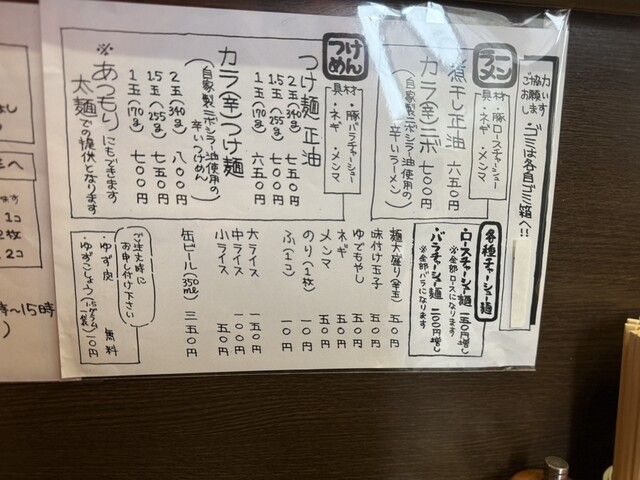 ご協力
お願いします
・ゴミは各自ゴミ箱へ!!
ラーメン
具材
・豚ロースチャーシュー
・ネギ ・メンマ
煮干し正油 六五〇円
カラ(辛)ニボ 七〇〇円
(自家製ニボシラー油使用の
辛いラーメン)
つけめん
具材
・豚バラチャーシュー
・ネギ ・メンマ
つけ麺 正油
2玉(340g) 七五〇円
1.5玉(255g) 七〇〇円
1玉(170g) 六五〇円
カラ(辛)つけ麺
(自家製ニボシラー油使用の
辛いつけめん)
2玉(340g) 八〇〇円
1.5玉(255g) 七五〇円
1玉(170g) 七〇〇円
※あつもりにもできます
太麺での提供となります
各種チャーシュー麺
・ロースチャーシュー麺 一五〇円増し
※全部ロースになります
・バラチャーシュー麺 二〇〇円増し
※全部バラになります
麺大盛り(半玉) 五〇円
味付け玉子 五〇円
ゆでもやし 五〇円
ネギ 五〇円
メンマ 五〇円
のり(1枚) 一〇円
ふ(1コ) 一〇円
大ライス 一五〇円
中ライス 一〇〇円
小ライス 五〇円
缶ビール(350ml) 三五〇円
ご注文時に
お申し付け下さい
・ゆず皮 無料
・ゆずこしょう 一〇円
1コ
2枚
2コ
時〜15時